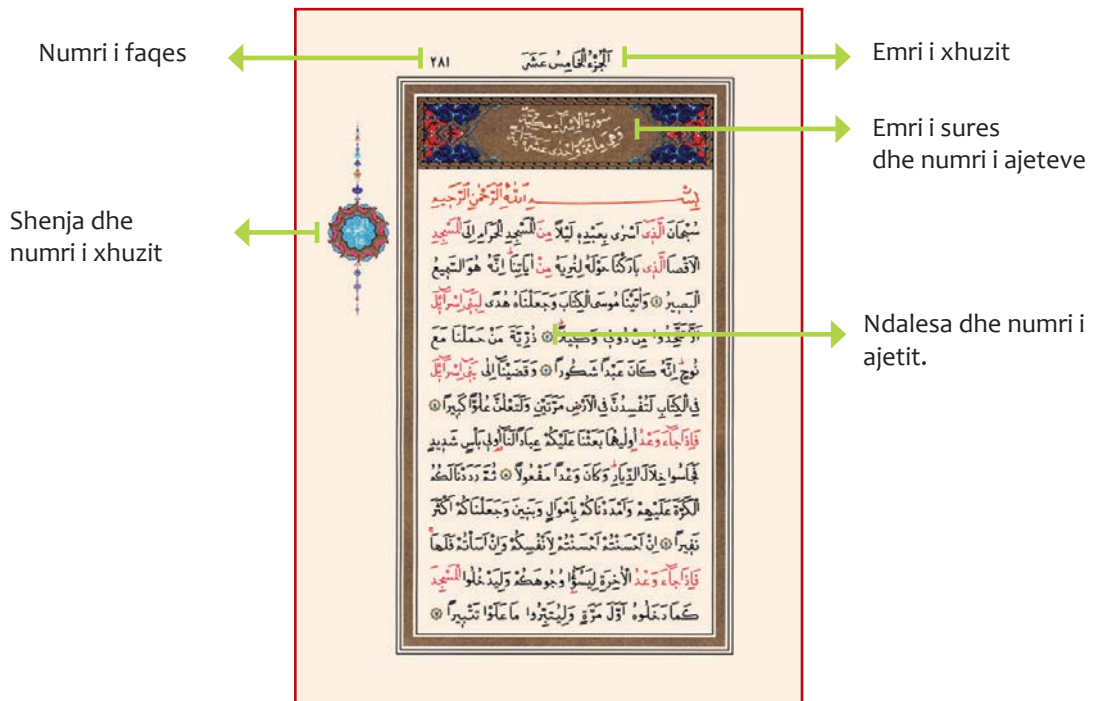 Numri i faqes
٢٨١
اَلْجُزْءُ الْخَامِسُ عَشَرَ
Emri i xhuzit
سُورَةُ الْاِسْرَاءِ مَكِّيَّةٌ
وَهِيَ مِائَةٌ وَاِحْدٰى عَشْرَةَ اٰيَةً
Emri i sures
dhe numri i ajeteve
بِسْمِ اللّٰهِ الرَّحْمٰنِ الرَّحِيمِ
سُبْحَانَ الَّذ۪ٓي اَسْرٰى بِعَبْدِه۪ لَيْلًا مِنَ الْمَسْجِدِ الْحَرَامِ اِلَى الْمَسْجِدِ
الْاَقْصَا الَّذ۪ي بَارَكْنَا حَوْلَهُ لِنُرِيَهُ مِنْ اٰيَاتِنَاۜ اِنَّهُ هُوَ السَّم۪يعُ
الْبَص۪يرُ ١ وَاٰتَيْنَا مُوسَى الْكِتَابَ وَجَعَلْنَاهُ هُدًى لِبَن۪ٓي اِسْرَٓائ۪لَ
اَلَّا تَتَّخِذُوا مِنْ دُون۪ي وَك۪يلًاۜ ٢ ذُرِّيَّةَ مَنْ حَمَلْنَا مَعَ
نُوحٍۜ اِنَّهُ كَانَ عَبْدًا شَكُورًا ٣ وَقَضَيْنَٓا اِلٰى بَن۪ٓي اِسْرَٓائ۪لَ
فِي الْكِتَابِ لَتُفْسِدُنَّ فِي الْاَرْضِ مَرَّتَيْنِ وَلَتَعْلُنَّ عُلُوًّا كَب۪يرًا ٤
فَاِذَا جَٓاءَ وَعْدُ اُو۫لٰيهُمَا بَعَثْنَا عَلَيْكُمْ عِبَادًا لَنَٓا اُو۬ل۪ي بَأْسٍ شَد۪يدٍ
فَجَاسُوا خِلَالَ الدِّيَارِۜ وَكَانَ وَعْدًا مَفْعُولًا ٥ ثُمَّ رَدَدْنَا لَكُمُ
الْكَرَّةَ عَلَيْهِمْ وَاَمْدَدْنَاكُمْ بِاَمْوَالٍ وَبَن۪ينَ وَجَعَلْنَاكُمْ اَكْثَرَ
نَف۪يرًا ٦ اِنْ اَحْسَنْتُمْ اَحْسَنْتُمْ لِاَنْفُسِكُمْ وَاِنْ اَسَأْتُمْ فَلَهَاۜ
فَاِذَا جَٓاءَ وَعْدُ الْاٰخِرَةِ لِيَسُٓؤُ۫ا وُجُوهَكُمْ وَلِيَدْخُلُوا الْمَسْجِدَ
كَمَا دَخَلُوهُ اَوَّلَ مَرَّةٍ وَلِيُتَبِّرُوا مَا عَلَوْا تَتْب۪يرًا ٧
Shenja dhe
numri i xhuzit
Ndalesa dhe numri i
ajetit.